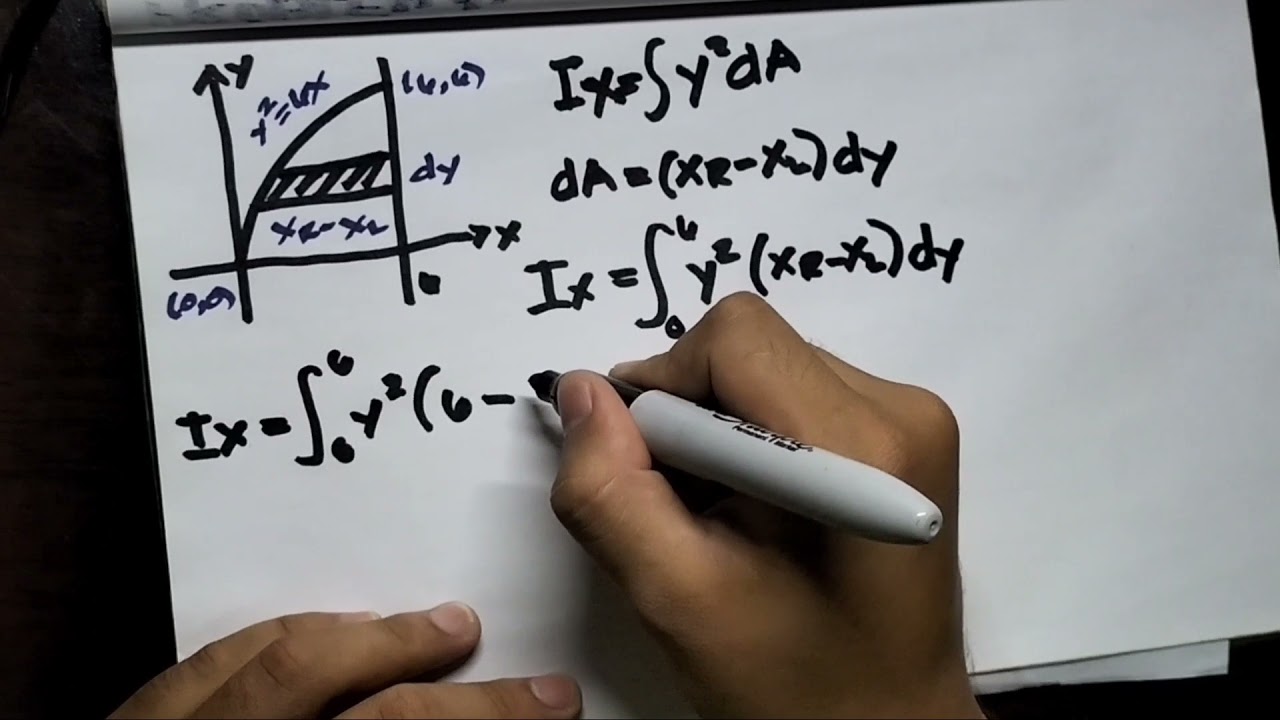 y
y²=6x
(6,6)
dy
x_R-x_L
x
(0,0)
6
Ix=∫y²dA
dA=(x_R-x_L)dy
Ix=∫₀⁶y²(x_R-x_L)dy
Ix=∫₀⁶y²(6-
Sharpie